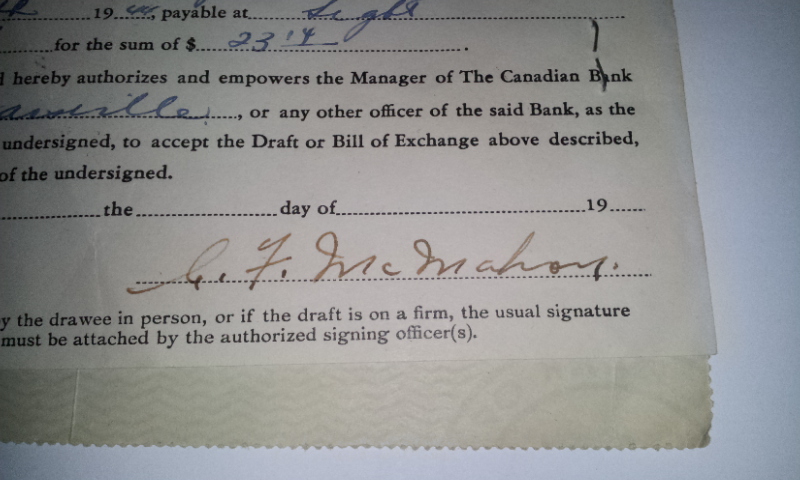 19 44, payable at Sight
for the sum of $ 23.14
hereby authorizes and empowers the Manager of The Canadian Bank
, or any other officer of the said Bank, as the
undersigned, to accept the Draft or Bill of Exchange above described,
of the undersigned.
the day of 19
C. F. McMahon.
y the drawee in person, or if the draft is on a firm, the usual signature
must be attached by the authorized signing officer(s).